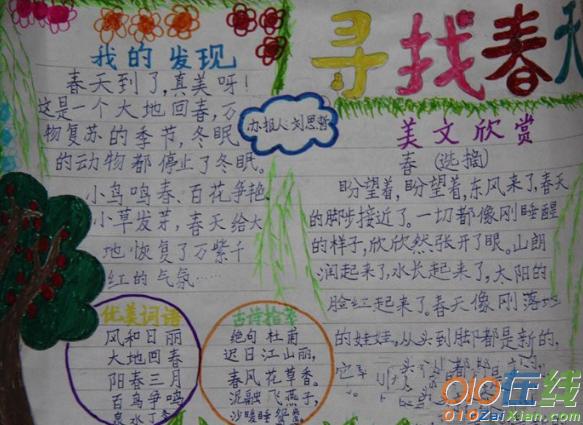 寻找春天
我的发现
春天到了,真美呀!
这是一个大地回春,万
物复苏的季节,冬眠
的动物都停止了冬眠。
小鸟鸣春、百花争艳、
小草发芽,春天给大
地恢复了万紫千
红的气氛……
办报人:刘思哲
美文欣赏
春(选摘)
盼望着,盼望着,东风来了,春天
的脚步接近了。一切都像刚睡醒
的样子,欣欣然张开了眼。山朗
润起来了,水长起来了,太阳的
脸红起来了。春天像刚落地
的娃娃,从头到脚都是新的,
它
优美词语
风和日丽
大地回春
阳春三月
百鸟争鸣
古诗拾萃
绝句 杜甫
迟日江山丽,
春风花草香。
泥融飞燕子,
沙暖睡鸳鸯
010在线
010ZaiXian.com